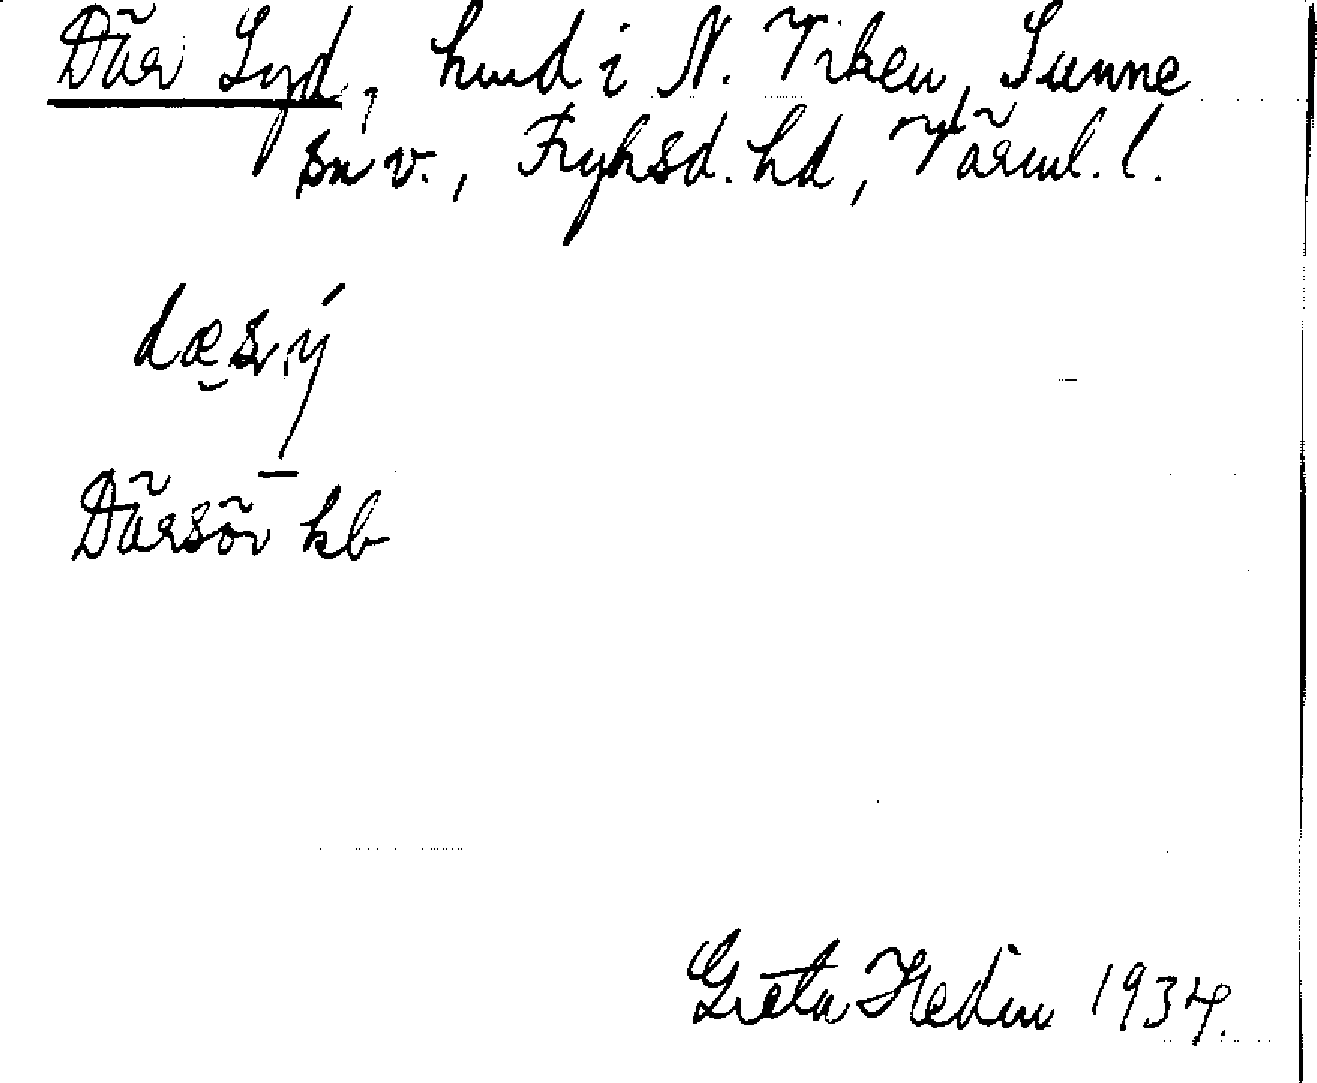 Där Syd, hmd i N. Viken, Sunne
sn v., Fryksd. hd, Värml. l.
Därsör kb
Greta Hedin 1934.